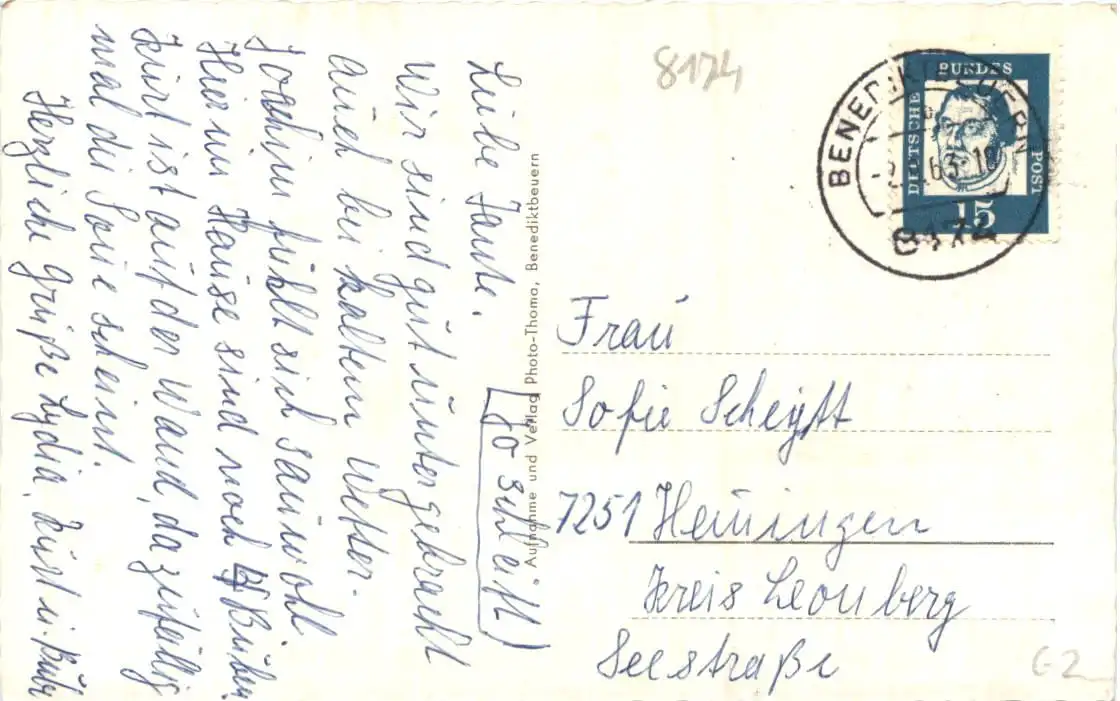 Liebe Tante.
Wir sind gut untergebracht
auch bei kaltem Wetter.
Joachim fühlt sich sauwohl
Hier im Hause sind noch Buben
Kurt ist auf der Wand, da zufällig
mal die Sonne scheint.
Herzliche Grüße Lydia, Kurt u. Bub
Aufnahme und Verlag Photo-Thoma, Benediktbeuern
8174
DEUTSCHE BUNDESPOST
15
BENEDIKTBEUERN
63-18
8174
Frau
Sofie
7251 Heimingen
Kreis Leonberg
Seestraße
G2